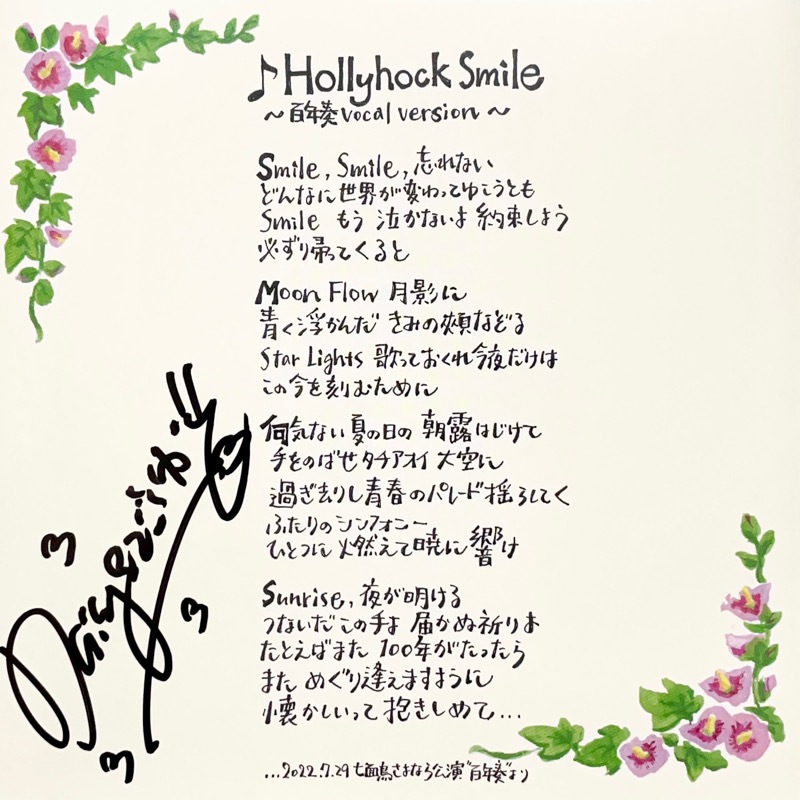 ♪Hollyhock Smile
～百年奏vocal version～
Smile, Smile, 忘れない
どんなに世界が変わってゆこうとも
Smile もう 泣かないよ 約束しよう
必ずり帰ってくると
Moon Flow 月影に
青く浮かんだ きみの頬なぞる
Star Lights 歌っておくれ今夜だけは
この今を刻むために
何気ない夏の日の 朝露はじけて
手をのばせタチアオイ 大空に
過ぎ去りし青春のパレード揺らしてく
ふたりのシンフォニー
ひとつに 燃えて暁に 響け
Sunrise, 夜が明ける
つないだこの手よ 届かぬ祈りよ
たとえばまた 100年がたったら
また めぐり逢えますように
懐かしいって 抱きしめて...
...2022.7.29 七面鳥さよなら公演"百年奏"より